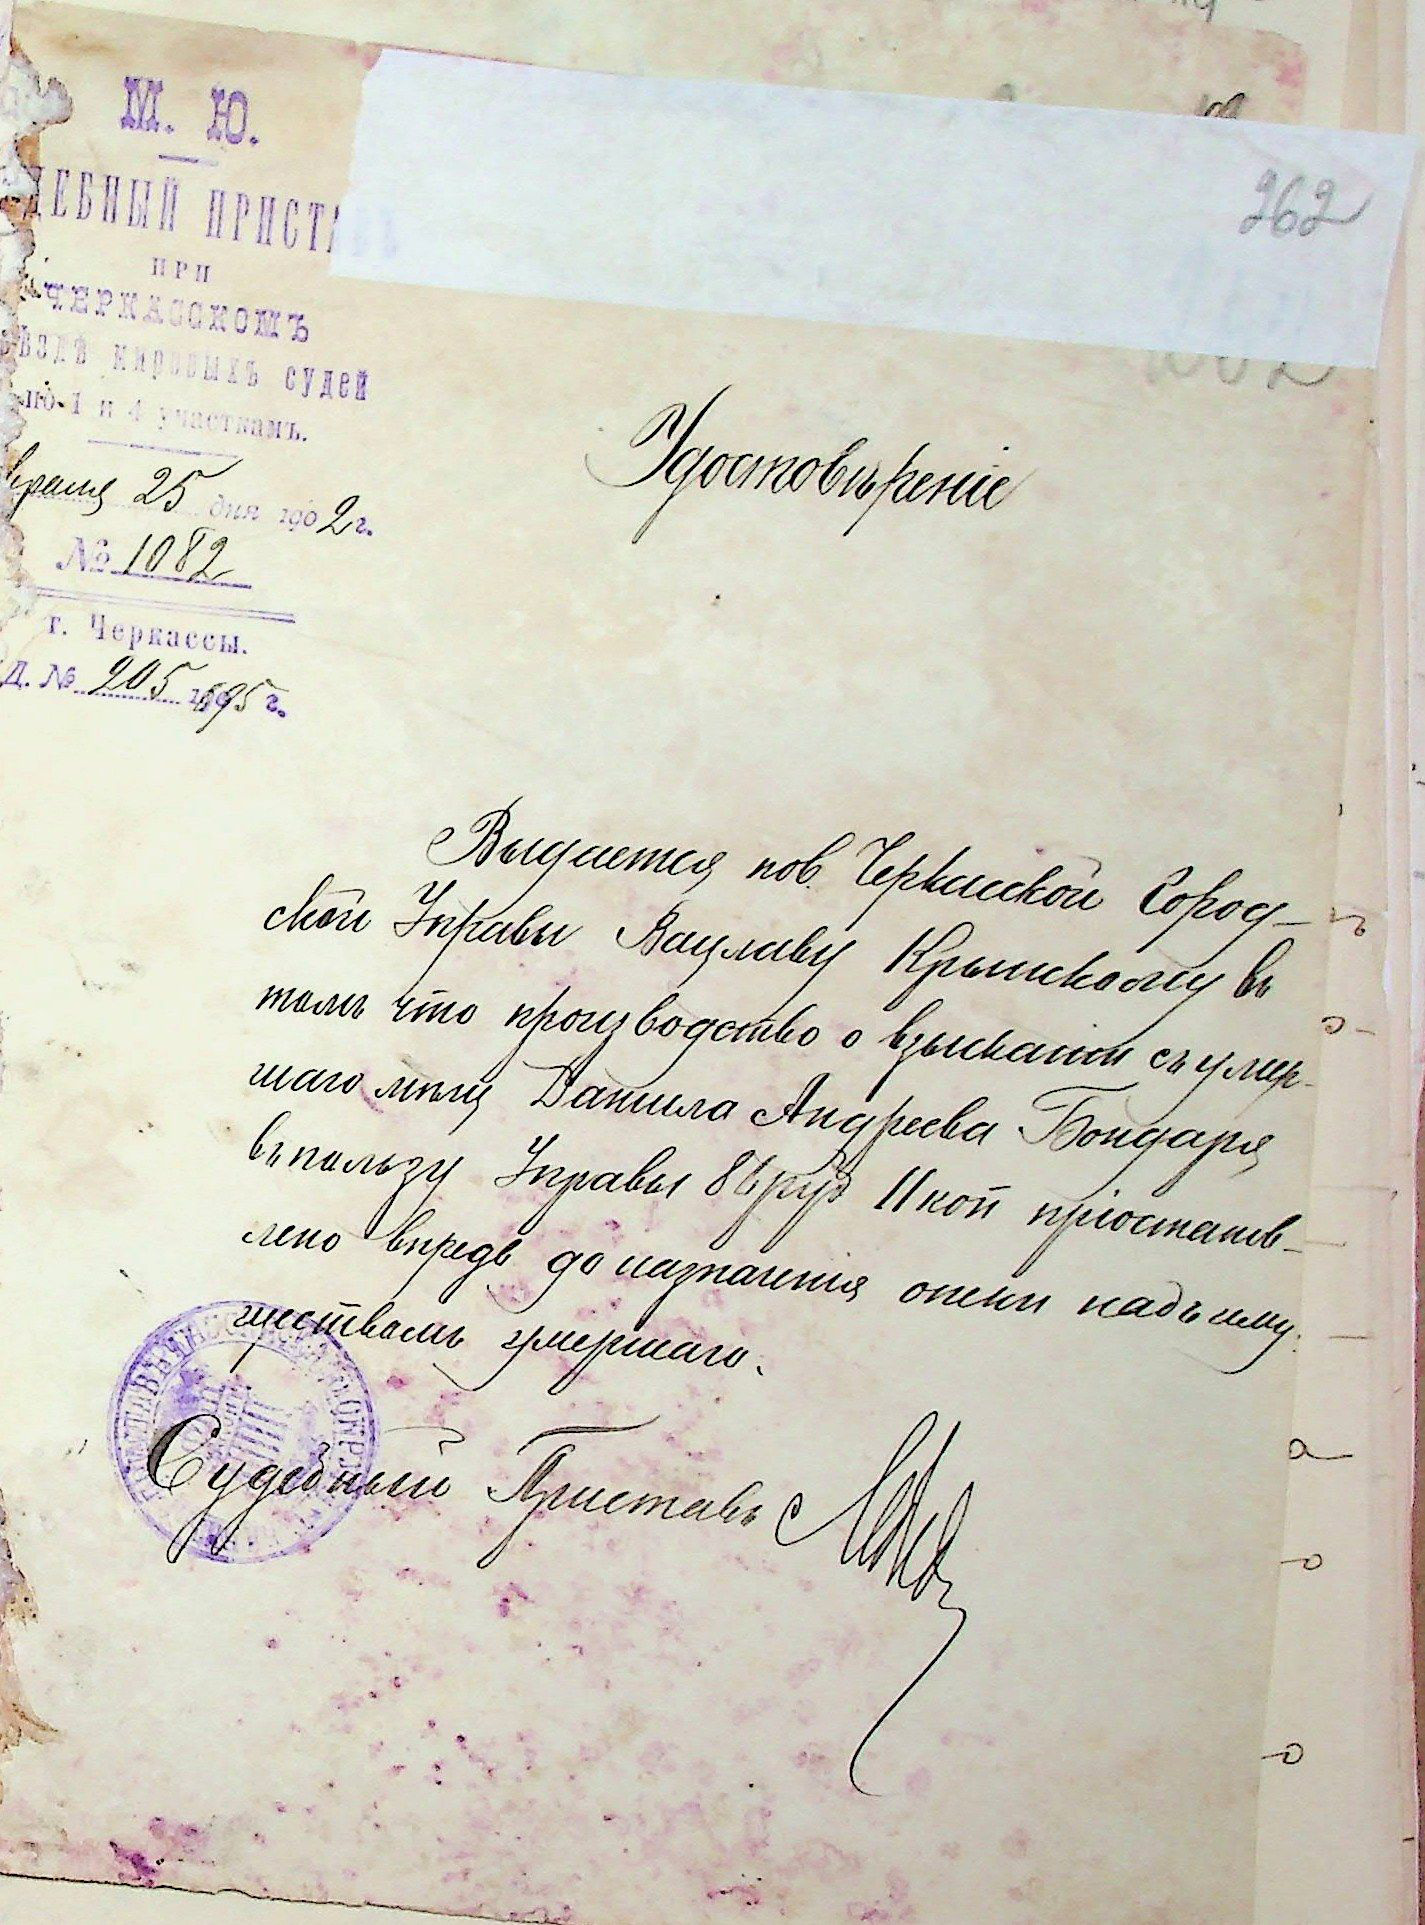 262
М. Ю.
ДЕБНЫЙ ПРИСТАВЪ
ПРИ
ЧЕРКАССКОМЪ
ѣздѣ мировыхъ судей
по 1 и 4 участкамъ.
враля 25 дня 1902 г.
№ 1082
г. Черкассы.
Д. № 205 1895 г.
Удостовѣреніе
Выдается пов. Черкасской Город-
ской Управы Вацлаву Крынскому въ
томъ что производство о взысканіи съ умер-
шаго мѣщ Данила Андреева Бондаря
въ пользу Управы 86 руб 11 коп пріостанов-
лено впредь до назначенія опеки надъ иму-
ществомъ умершаго.
Судебный Приставъ